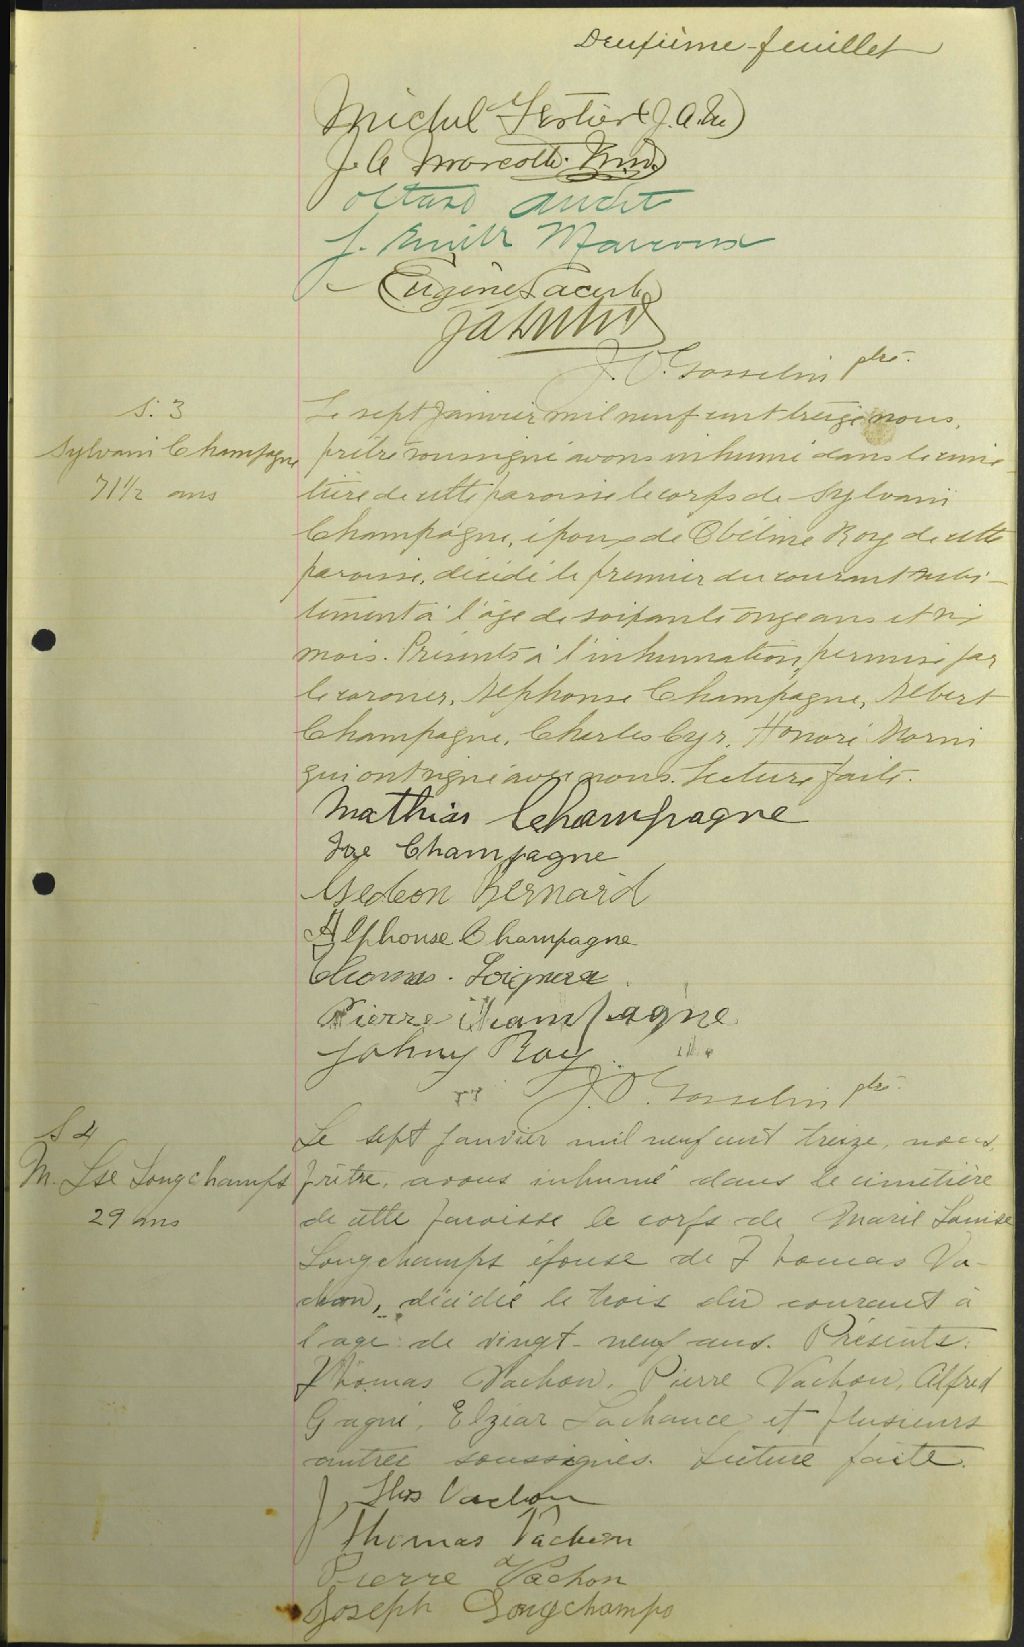 Deuxième feuillet
Michel
J. A. Marcotte
Octave Audet
J. Emile Marcoux
Eugène
J. O. Gosselin ptre.
S. 3
Sylvain Champagne
71 1/2 ans
Le sept Janvier mil neuf cent treize nous,
prêtre soussigné avons inhumé dans le cime-
tière de cette paroisse le corps de Sylvain
Champagne, époux de Obéline Roy de cette
paroisse, décédé le premier du courant subi-
tement à l'âge de soixante onze ans et six
mois. Présents à l'inhumation, permise par
le coroner, Alphonse Champagne, Albert
Champagne, Charles Cyr, Honoré Morin
qui ont signé avec nous. Lecture faite.
Mathias Champagne
Joe Champagne
Gedeon Bernard
Alphonse Champagne
Thomas
Pierre Champagne
Johny Roy
J. O. Gosselin ptre.
S 4
M. Lse Longchamps
29 ans
Le sept janvier mil neuf cent treize, nous,
prêtre, avons inhumé dans le cimetière
de cette paroisse le corps de Marie Louise
Longchamps épouse de Thomas Va-
chon, décédée le trois du courant à
l'age de vingt-neuf ans. Présents:
Thomas Vachon, Pierre Vachon, Alfred
Gagné, Elzéar Lachance et plusieurs
autres soussignés. Lecture faite.
J. Ths Vachon
Thomas Vachon
Pierre Vachon
Joseph Longchamps